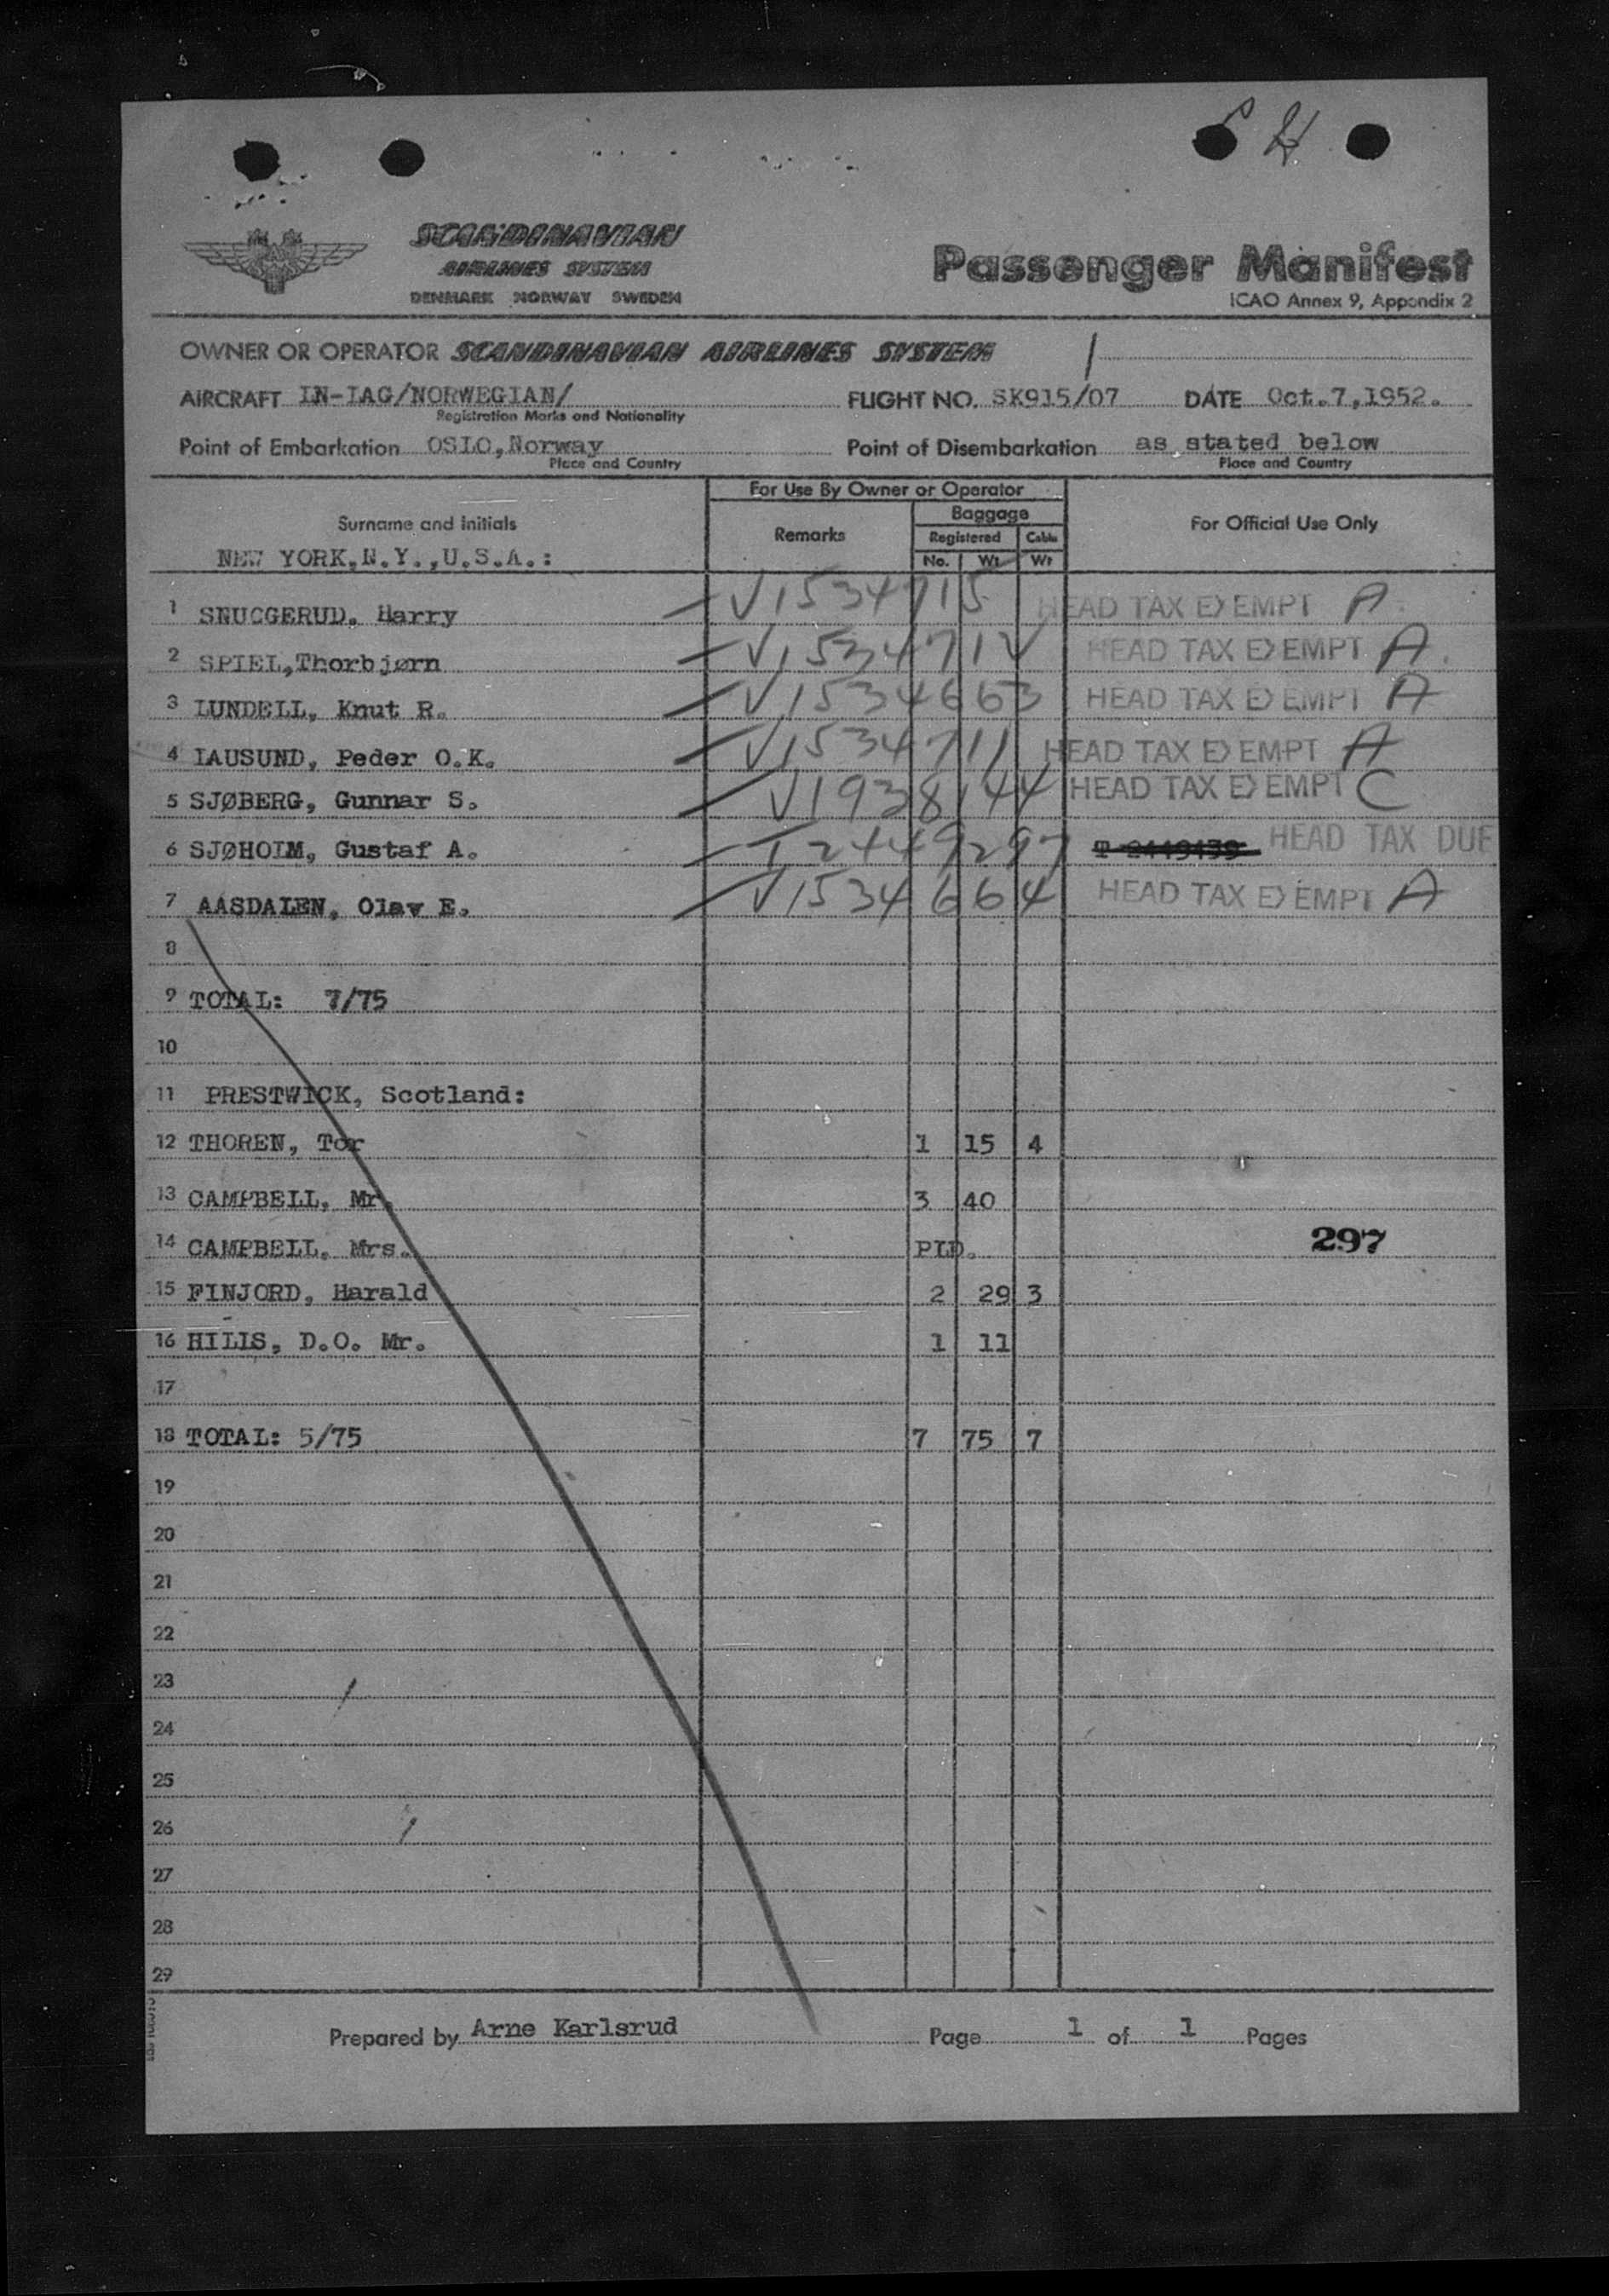 SCANDINAVIAN
AIRLINES SYSTEM
DENMARK NORWAY SWEDEN
Passenger Manifest
ICAO Annex 9, Appendix 2
OWNER OR OPERATOR SCANDINAVIAN AIRLINES SYSTEM
AIRCRAFT LN-LAG/NORWEGIAN/ FLIGHT NO. SK915/07 DATE Oct.7,1952.
Registration Marks and Nationality
Point of Embarkation OSLO,Norway Point of Disembarkation as stated below
Place and Country Place and Country
For Use By Owner or Operator
Surname and initials Remarks Baggage For Official Use Only
Registered Cabin
NEW YORK,N.Y.,U.S.A.: No. Wt Wt
1 SNUGGERUD, Harry V1534715 HEAD TAX EXEMPT A
2 SPIEL,Thorbjørn V1534712 HEAD TAX EXEMPT A
3 LUNDELL, Knut R. V1534663 HEAD TAX EXEMPT A
4 LAUSUND, Peder O.K. V1534711 HEAD TAX EXEMPT A
5 SJØBERG, Gunnar S. V1938144 HEAD TAX EXEMPT C
6 SJØHOLM, Gustaf A. T2449297 HEAD TAX DUE
7 AASDALEN, Olav E. V1534664 HEAD TAX EXEMPT A
8
9 TOTAL: 7/75
10
11 PRESTWICK, Scotland:
12 THOREN, Tor 1 15 4
13 CAMPBELL, Mr. 3 40
14 CAMPBELL, Mrs. PLD. 297
15 FINJORD, Harald 2 29 3
16 HILLS, D.O. Mr. 1 11
17
18 TOTAL: 5/75 7 75 7
19
20
21
22
23
24
25
26
27
28
29
Prepared by Arne Karlsrud Page 1 of 1 Pages